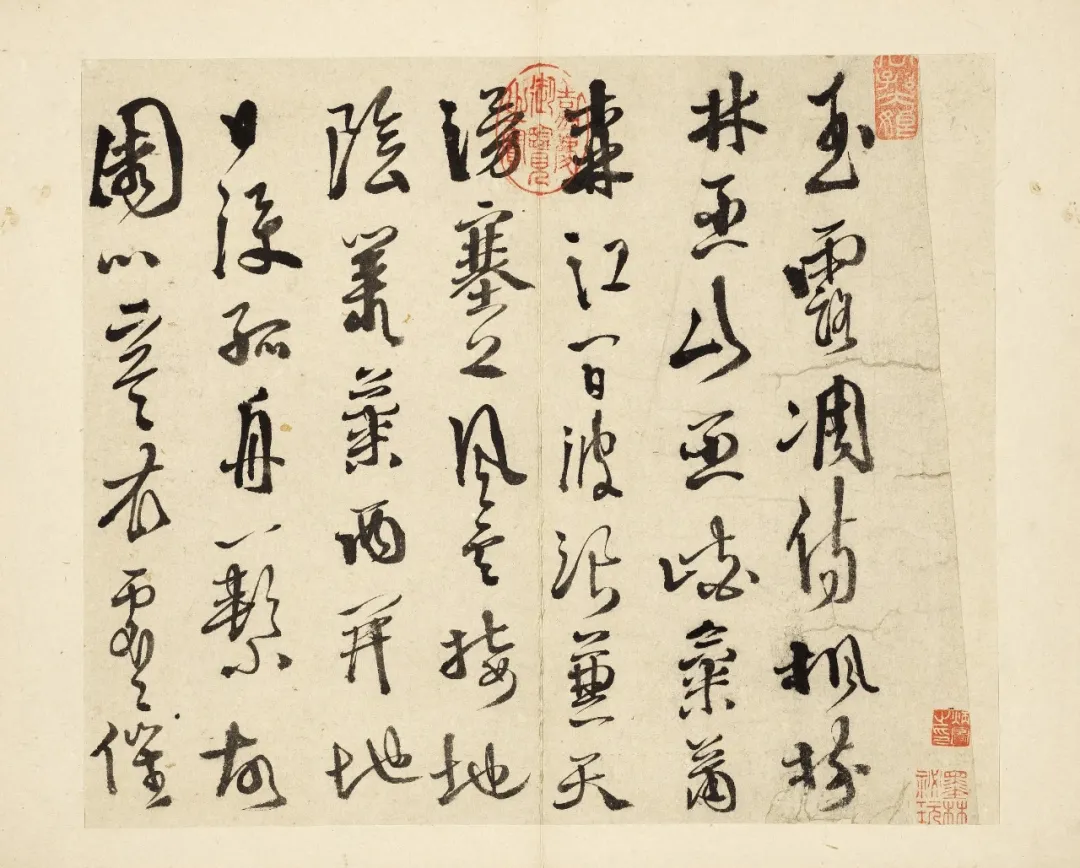 玉露凋傷楓樹
林巫山巫峽氣蕭
森江間波浪兼天
湧塞上風雲接地
陰叢菊兩開地
日淚孤舟一繫故
園心寒衣處〻催
嘉慶御覽之寶
墨林祕玩